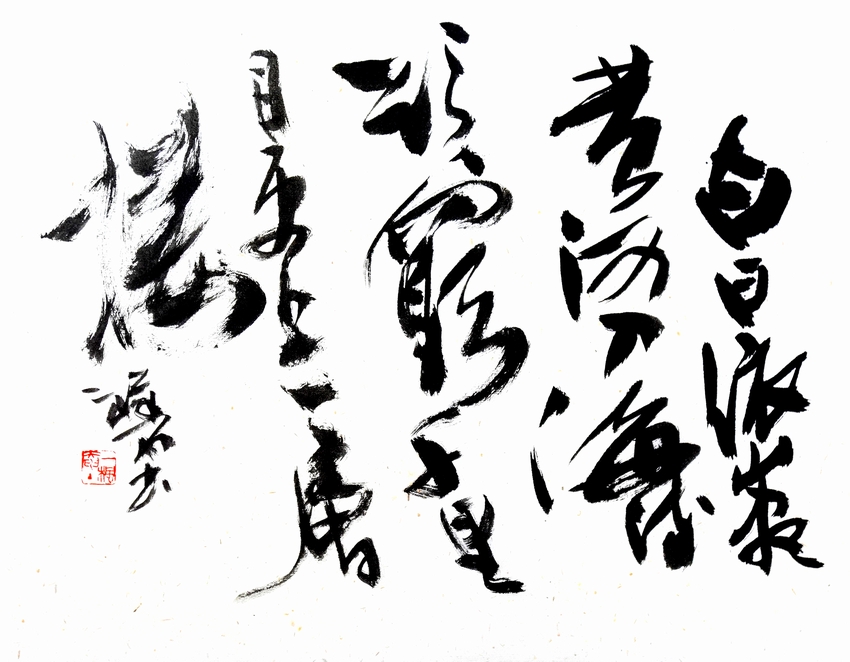 白日依山盡
黄河入海流
欲窮千里
目更上一層
樓
石书